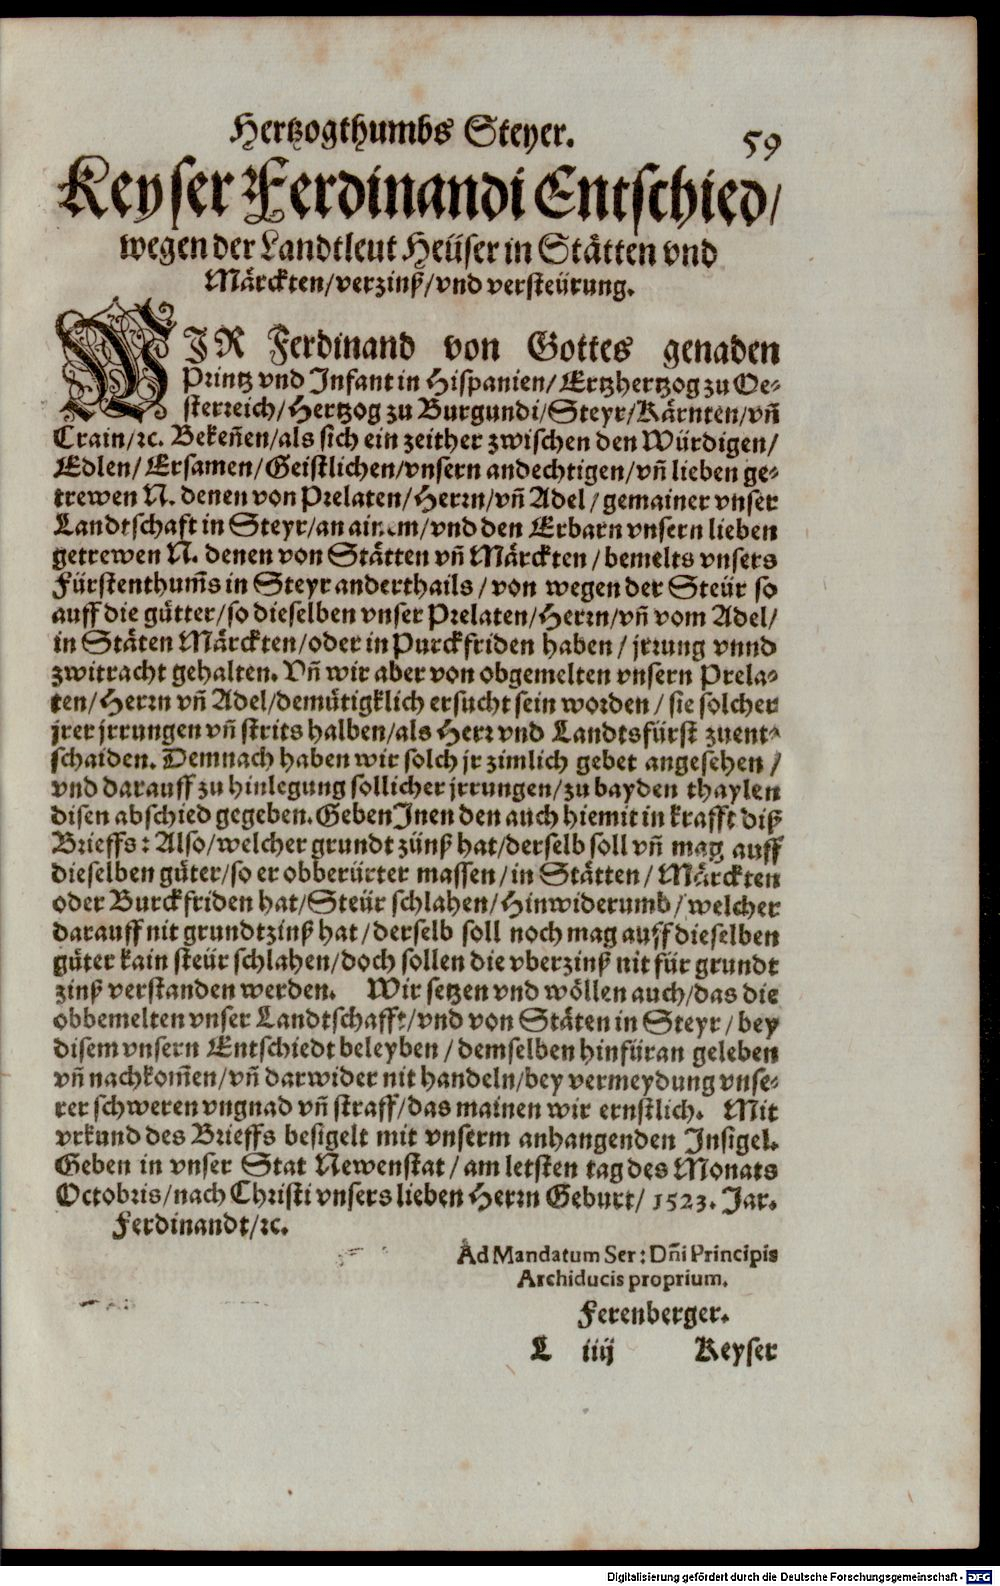 Hertzogthumbs Steyer. 59
Keyser Ferdinandi Entschied/
wegen der Landtleut Heüser in Stätten vnd
Märckten/verzinß/vnd versteürung.
WJR Ferdinand von Gottes genaden
Printz vnd Jnfant in Hispanien/ Ertzhertzog zu Oe-
sterreich/Hertzog zu Burgundi/Steyr/Kärnten/vñ
Crain/ꝛc. Bekeñen/als sich ein zeither zwischen den Würdigen/
Edlen/ Ersamen/Geistlichen/vnsern andechtigen/vñ lieben ge-
trewen N. denen von Prelaten/Herrn/vñ Adel/ gemainer vnser
Landtschaft in Steyr/an ainem/vnd den Erbarn vnsern lieben
getrewen N. denen von Stätten vñ Märckten/ bemelts vnsers
Fürstenthum̃s in Steyr anderthails/ von wegen der Steür so
auff die gütter/so dieselben vnser Prelaten/Herrn/vñ vom Adel/
in Stäten Märckten/oder in Purckfriden haben/ jrrung vnnd
zwitracht gehalten. Vñ wir aber von obgemelten vnsern Prela-
ten/Herrn vñ Adel/demütigklich ersucht sein worden/ sie solcher
jrer jrrungen vñ strits halben/als Herr vnd Landtsfürst zuent-
schaiden. Demnach haben wir solch jr zimlich gebet angesehen/
vnd darauff zu hinlegung sollicher jrrungen/zu bayden thaylen
disen abschied gegeben. Geben Jnen den auch hiemit in krafft diß
Brieffs: Also/welcher grundt zünß hat/derselb soll vñ mag auff
dieselben güter/so er obberürter massen/in Stätten/ Märckten
oder Burckfriden hat/Steür schlahen/Hinwiderumb/welcher
darauff nit grundtzinß hat/derselb soll noch mag auff dieselben
güter kain steür schlahen/doch sollen die vberzinß nit für grundt
zinß verstanden werden. Wir setzen vnd wöllen auch/das die
obbemelten vnser Landtschafft/vnd von Stäten in Steyr/ bey
disem vnsern Entschiedt beleyben/demselben hinfüran geleben
vñ nachkom̃en/vñ darwider nit handeln/bey vermeydung vnse-
rer schweren vngnad vñ straff/das mainen wir ernstlich. Mit
vrkund des Brieffs besigelt mit vnserm anhangenden Jnsigel.
Geben in vnser Stat Newenstat/am letsten tag des Monats
Octobris/nach Christi vnsers lieben Herrn Geburt/ 1523. Jar.
Ferdinandt/ꝛc.
Ad Mandatum Ser: Dñi Principis
Archiducis proprium.
Ferenberger.
L iiij Keyser
Digitalisierung gefördert durch die Deutsche Forschungsgemeinschaft - DFG